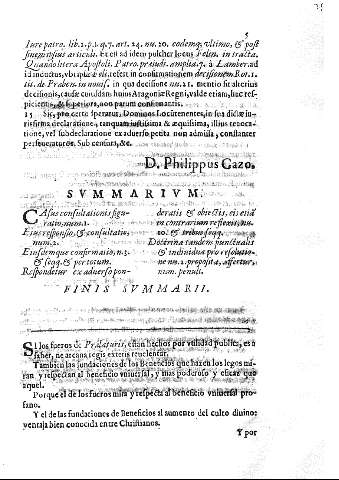 5
Iure patrio. lib. 2. p. 1. q. 7. art. 24. nu. 10. codemq; vltimo, & post
finem ipsius articuli. Et est ad idem pulcher locus Felin. in tracta.
Quando litera Apostoli. Patro. preiudi. ampliat. 7. à Lamber. ad
id inductus, vbi apta à eis. refert in confirmationem decisionem Rot. 1.
tis. de Praben. in nouis. in qua decisione nu. 21. mentio fit alterius
decisionis, eandem consuetudinem huius Aragoniae Regni, valde etiam, huc res-
picientis, & superiora, non parum confirmantis.
15 Sic, pro certo speratur, Dominos Locumtenentes, in sua dicta iu-
rissima declaratione, tanquam iustissima & aequissima, illius reuoca-
tione, vel subdeclaratione ex aduerso petita non admissa, constanter
perseueraturos. Sub censura, &c.
D. Philippus Gazo.
SVMMARIVM.
CAsus consultationis figu-
ratio, num. 1.
Eius responsio, & consultatio,
num. 2.
Eiusdemque confirmatio, n. 3.
& seqq. & per totum.
Respondetur ex aduerso pon-
deratis & obiectis, eis etiā
in contrarium reflexis, nu.
10. & tribus seqq.
Doctrina tandem punctualis
& indiuidua pro resolutio-
ne nu. 1. proposita, affertur,
num. penult.
FINIS SVMMARII.
SI los fueros de Praelaturis, estan hechos por vtilidad publica, es a
saber, ne arcana regis exteris reuelentur.
Tambien las fundaciones de los Beneficios que hazen los legos mi-
ran y respectan al beneficio vniuersal, y mas poderoso y eficaz que
aquel.
Porque el de los fueros mira y respecta al beneficio vniuersal pro-
fano.
Y el de las fundaciones de Beneficios al aumento del culto diuino:
ventaja bien conocida entre Christianos.
Y por